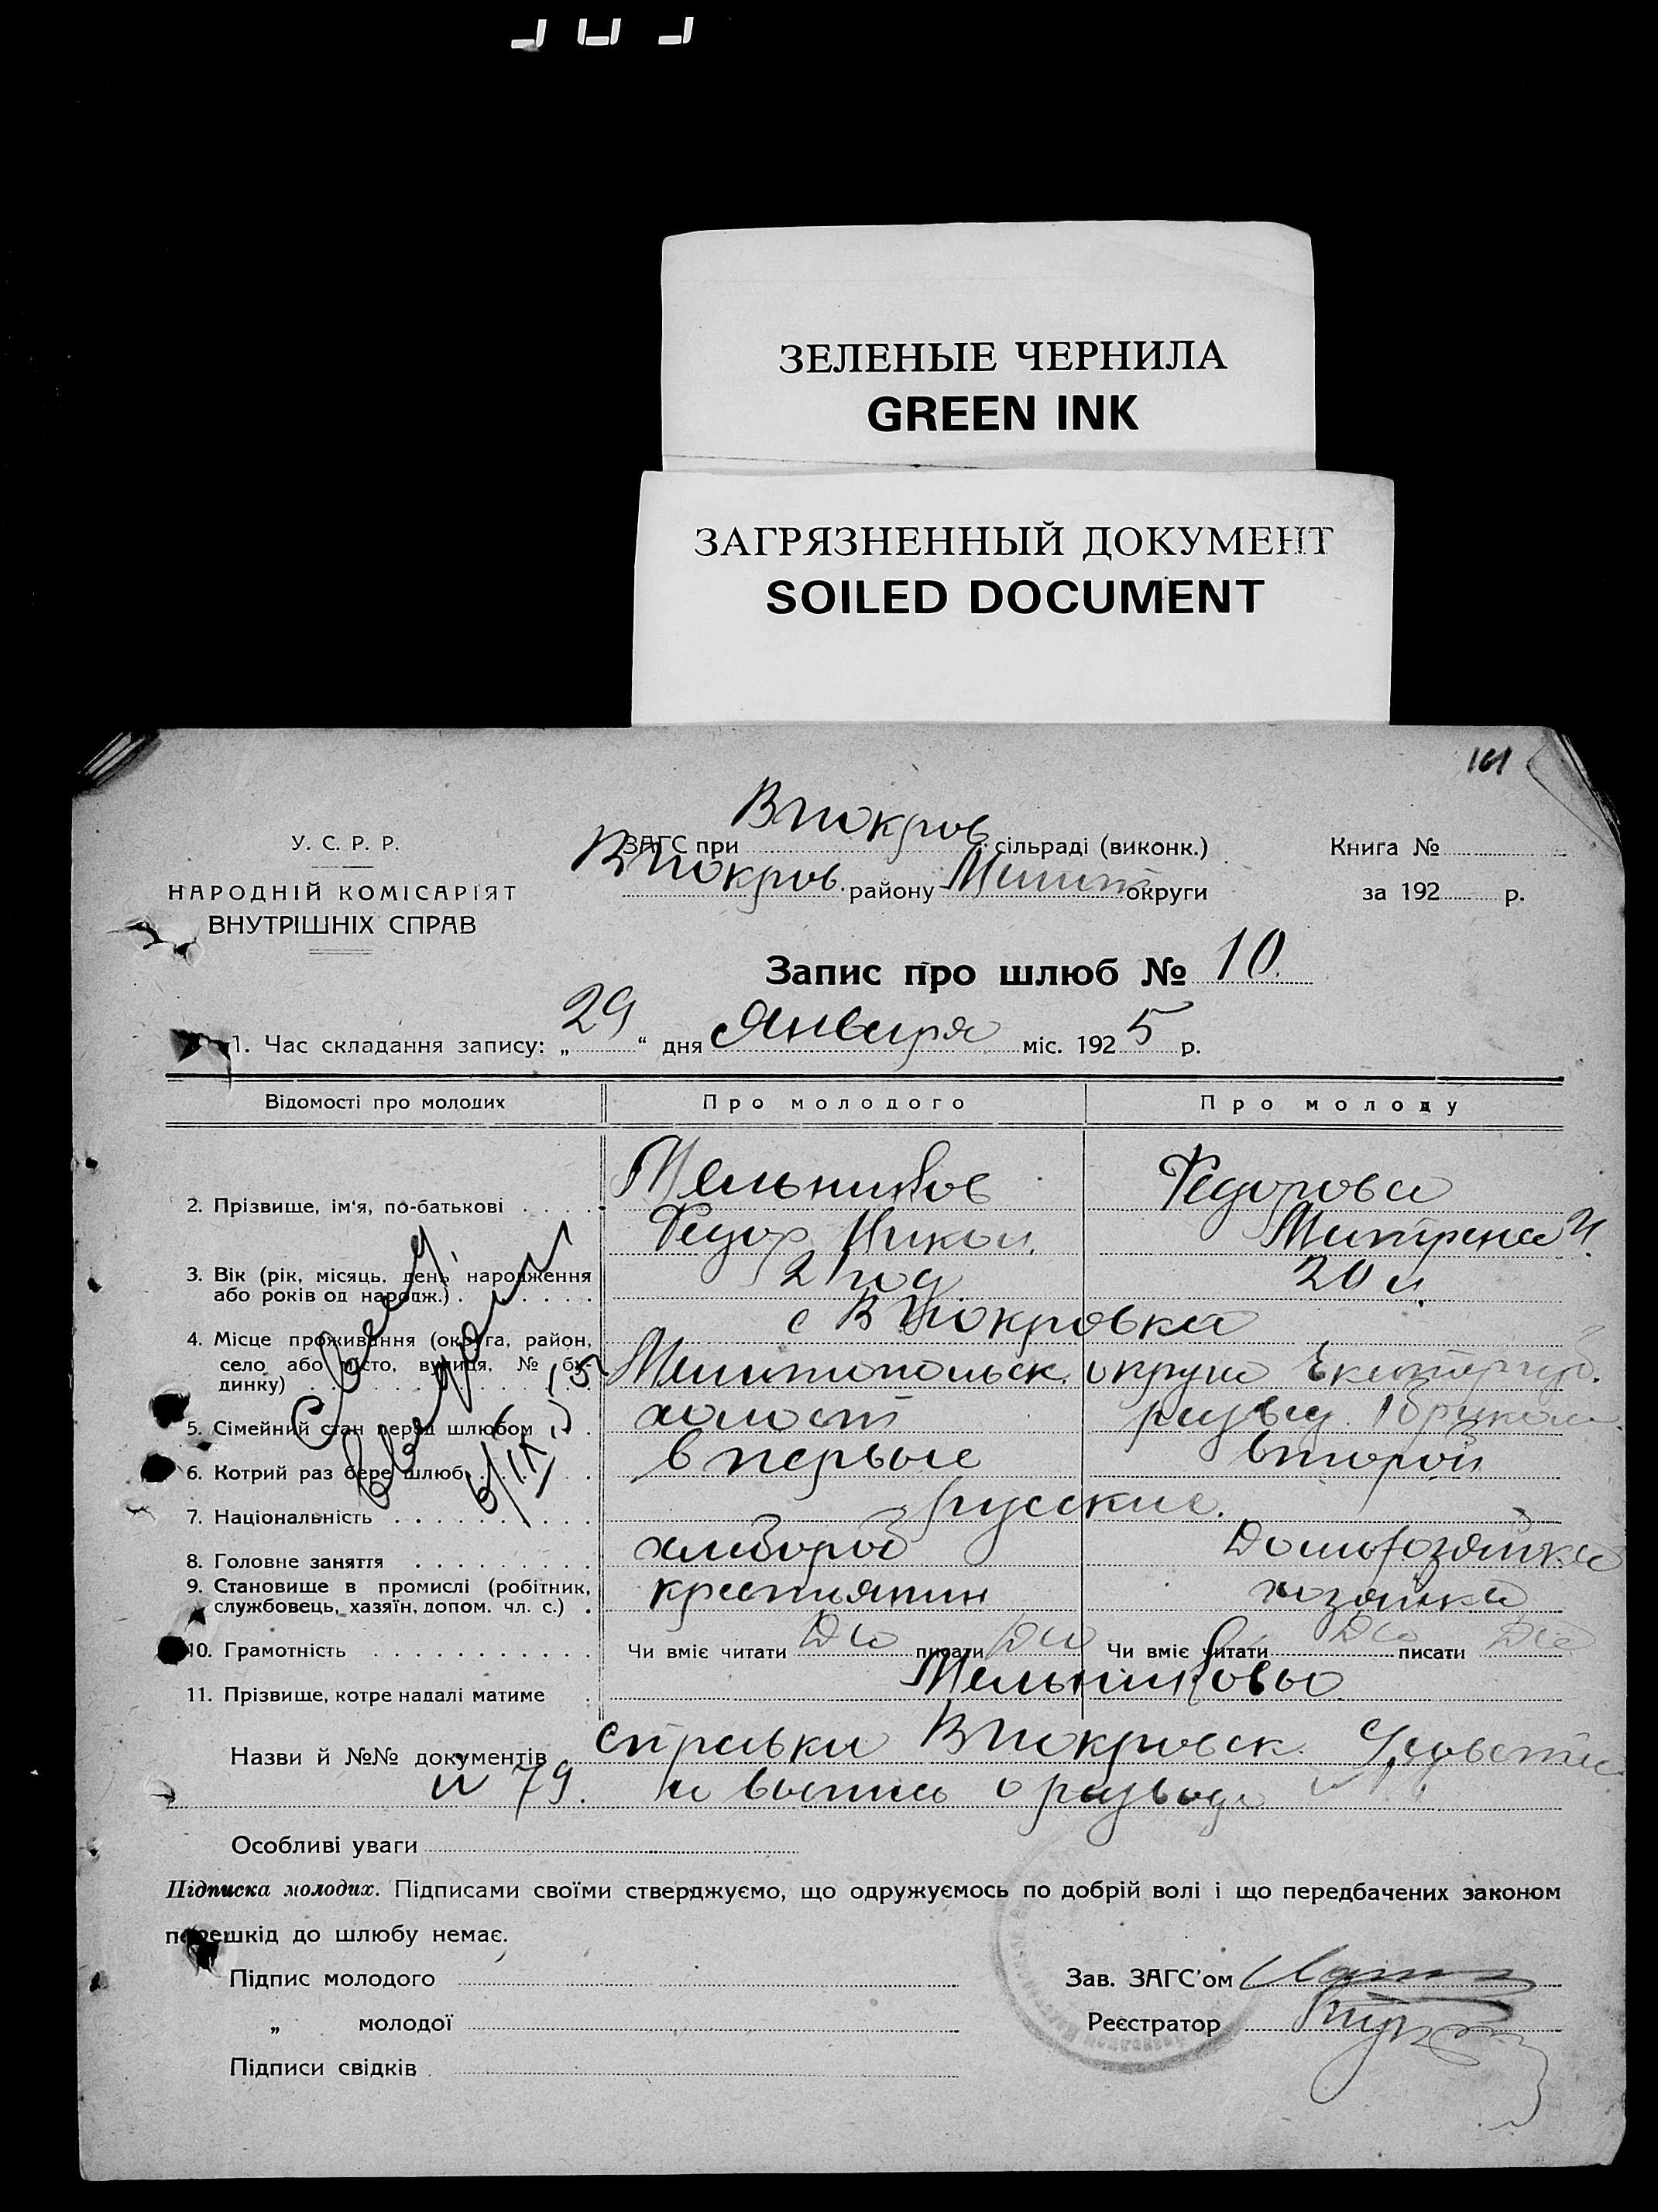 ЗЕЛЕНЫЕ ЧЕРНИЛА
GREEN INK
ЗАГРЯЗНЕННЫЙ ДОКУМЕНТ
SOILED DOCUMENT
161
У. С. Р. Р.
НАРОДНІЙ КОМІСАРІЯТ
ВНУТРІШНІХ СПРАВ
ЗАГС при В Покров. сільраді (виконк.)
В Покров. району Мелит округи
Книга №
за 192 р.
Запис про шлюб № 10.
1. Час складання запису: „29“ дня Января міс. 1925 р.
Відомості про молодих Про молодого Про молоду
2. Прізвище, ім‘я, по-батькові Мельников Федорова
Федор Никол. Митрена И.
3. Вік (рік, місяць, день народження або років од народж.) 21 год 20 л.
с В Покровка
4. Місце проживання (округа, район, село або місто, вулиця, № будинку) Мелитопольск. округа Екатер губ.
5. Сімейний стан перед шлюбом холост развед.
6. Котрий раз бере шлюб в первые второй
7. Національність русские.
8. Головне заняття хлебороб Домохозяйка
9. Становище в промислі (робітник, службовець, хазяїн, допом. чл. с.) крестьянин хозяйка
10. Грамотність Чи вміє читати Да писати Да Чи вміє читати Да писати Да
11. Прізвище, котре надалі матиме Мельниковы
Назви й №№ документів справки В Покровск.
№ 79. и выпись о разводе
Особливі уваги
Підписка молодих. Підписами своїми стверджуємо, що одружуємось по добрій волі і що передбачених законом
перешкід до шлюбу немає.
Підпис молодого
„ молодої
Підписи свідків
Зав. ЗАГС’ом
Реєстратор